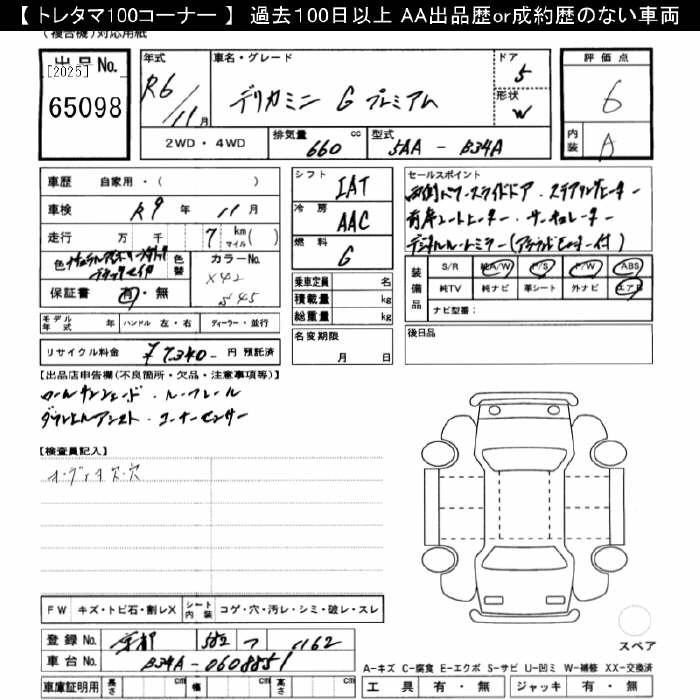 【トレタマ100コーナー】 過去100日以上 AA出品歴or成約歴のない車両
(複合機)対応用紙
出品No.
[2025]
65098
年式
R6/11月
車名・グレード
デリカミニ G プレミアム
ドア
5
形状
W
評価点
6
内装
A
2WD・4WD
排気量
660 cc
型式
5AA - B34A
車歴 自家用・( )
車検 R9 年 11 月
走行 万 千 7 km マイル( )
色
色替
カラーNo.
X42
545
保証書 有・無
モデル年式 年 ハンドル 左・右 ディーラー・並行
リサイクル料金 ¥7,340- 円 預託済
シフト
IAT
冷房
AAC
燃料
G
乗車定員 名
積載量 kg
総重量 kg
名変期限
月 日
セールスポイント
両側パワースライドドア・ステアリングヒーター
前席シートヒーター・サーキュレーター
デジタルルームミラー(アラウンドモニター付)
装備品
S/R 純A/W P/S P/W ABS
純TV 純ナビ 革シート 外ナビ エアB
ナビ型番:
後日品
【出品店申告欄(不良箇所・欠品・注意事項等)】
ロールサンシェード・ルーフレール
ダウンヒルアシスト・コーナーセンサー
【検査員記入】
オーディオ欠・穴
FW キズ・トビ石・割レX シート内装 コゲ・穴・汚レ・シミ・破レ・スレ
登録No. 京都 582 つ 1162
車台No. B34A-0608851
車庫証明用 長さ cm 幅 cm 高さ cm
スペア
A-キズ C-腐食 E-エクボ S-サビ U-凹ミ W-補修 XX-交換済
工具 有・無 ジャッキ 有・無